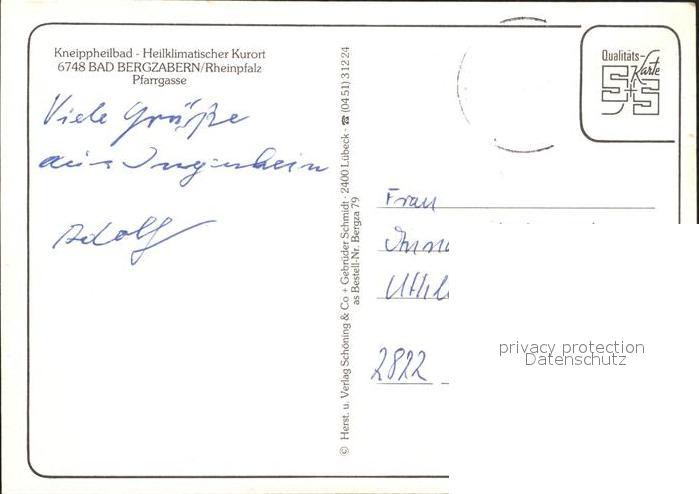 Kneippheilbad - Heilklimatischer Kurort
6748 BAD BERGZABERN/Rheinpfalz
Pfarrgasse
Viele Grüße
aus Ingenheim
Adolf
© Herst. u. Verlag Schöning & Co + Gebrüder Schmidt · 2400 Lübeck · ☎ (0451) 3 12 24
as Bestell-Nr. Bergza 79
Qualitäts-
Karte
S+S
Frau
2822
privacy protection
Datenschutz